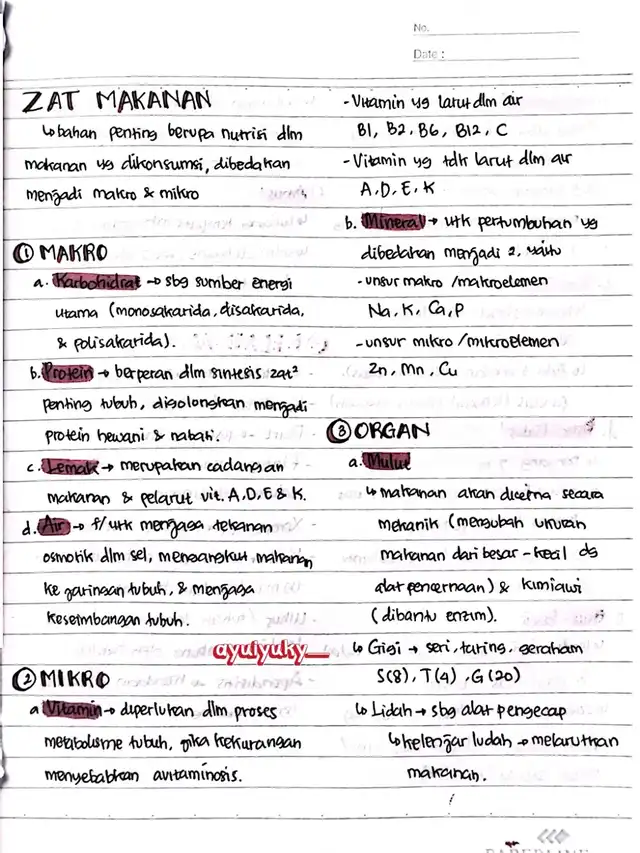 No.
Date :
ZAT MAKANAN
↳ bahan penting berupa nutrisi dlm
makanan yg dikonsumsi, dibedakan
menjadi makro & mikro
① MAKRO
a. Karbohidrat → sbg sumber energi
utama (monosakarida, disakarida,
& polisakarida).
b. Protein → berperan dlm sintesis zat²
penting tubuh, digolongkan menjadi
protein hewani & nabati.
c. Lemak → merupakan cadangan
makanan & pelarut vit. A, D, E & K.
d. Air → f/ utk menjaga tekanan
osmotik dlm sel, mengangkut makanan
ke jaringan tubuh, & menjaga
keseimbangan tubuh.
② MIKRO
a. Vitamin → diperlukan dlm proses
metabolisme tubuh, jika kekurangan
menyebabkan avitaminosis.
- Vitamin yg larut dlm air
B1, B2, B6, B12, C
- Vitamin yg tdk larut dlm air
A, D, E, K
b. Mineral → utk pertumbuhan yg
dibedakan menjadi 2, yaitu
- unsur makro / makroelemen
Na, K, Ca, P
- unsur mikro / mikroelemen
Zn, Mn, Cu
③ ORGAN
a. Mulut
↳ makanan akan dicerna secara
mekanik (mengubah ukuran
makanan dari besar - kecil dg
alat pencernaan) & kimiawi
(dibantu enzim).
↳ Gigi → seri, taring, geraham
S(8), T(4), G(20)
↳ Lidah → sbg alat pengecap
↳ kelenjar ludah → melarutkan
makanan.
ayulyuky__